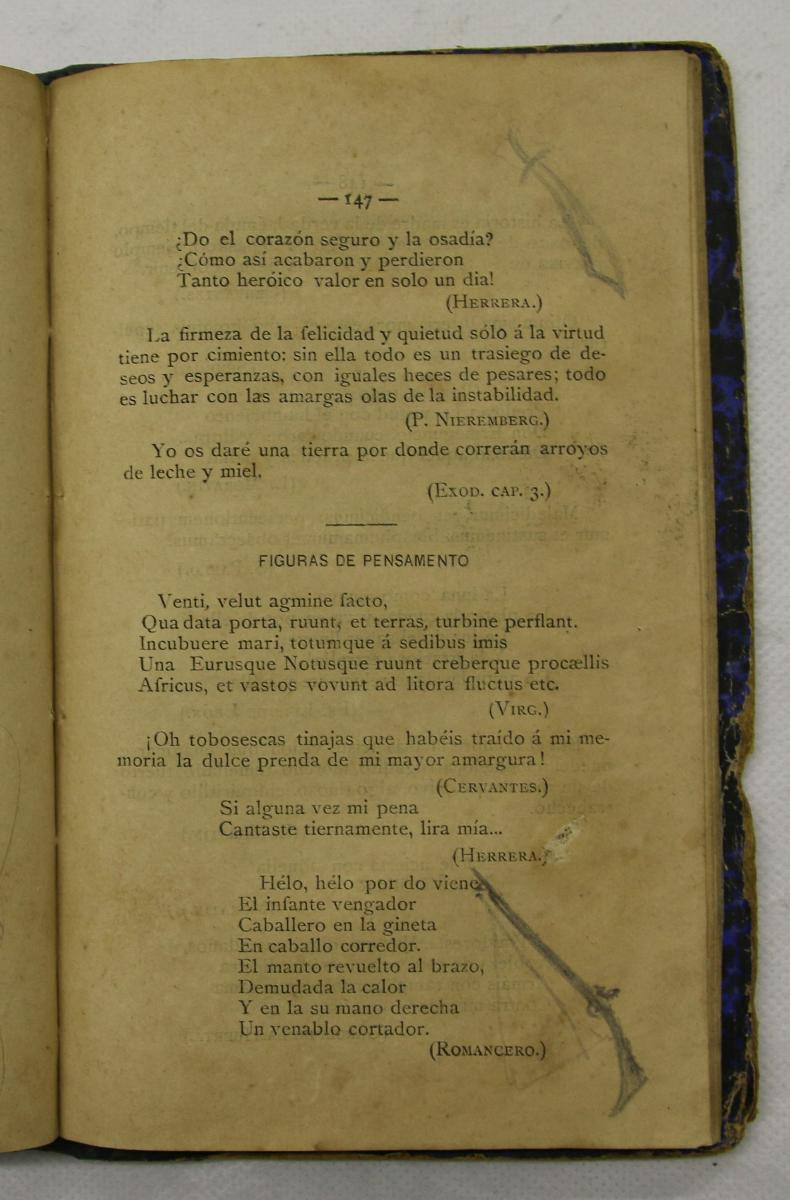 — 147 —
¿Do el corazón seguro y la osadía?
¿Cómo así acabaron y perdieron
Tanto heróico valor en solo un dia!
(Herrera.)
La firmeza de la felicidad y quietud sólo á la virtud
tiene por cimiento: sin ella todo es un trasiego de de-
seos y esperanzas, con iguales heces de pesares; todo
es luchar con las amargas olas de la instabilidad.
(P. Nieremberg.)
Yo os daré una tierra por donde correrán arroyos
de leche y miel.
(Exod. cap. 3.)
FIGURAS DE PENSAMENTO
Venti, velut agmine facto,
Qua data porta, ruunt, et terras, turbine perflant.
Incubuere mari, totumque á sedibus imis
Una Eurusque Notusque ruunt creberque procællis
Africus, et vastos vovunt ad litora fluctus etc.
(Virg.)
¡Oh tobosescas tinajas que habéis traído á mi me-
moria la dulce prenda de mi mayor amargura!
(Cervantes.)
Si alguna vez mi pena
Cantaste tiernamente, lira mía...
(Herrera.)
Hélo, hélo por do viene
El infante vengador
Caballero en la gineta
En caballo corredor.
El manto revuelto al brazo,
Demudada la calor
Y en la su mano derecha
Un venablo cortador.
(Romancero.)